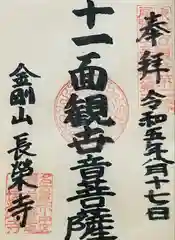 奉拝
令和五年八月十七日
十一面観世音菩薩
金剛山
長榮寺